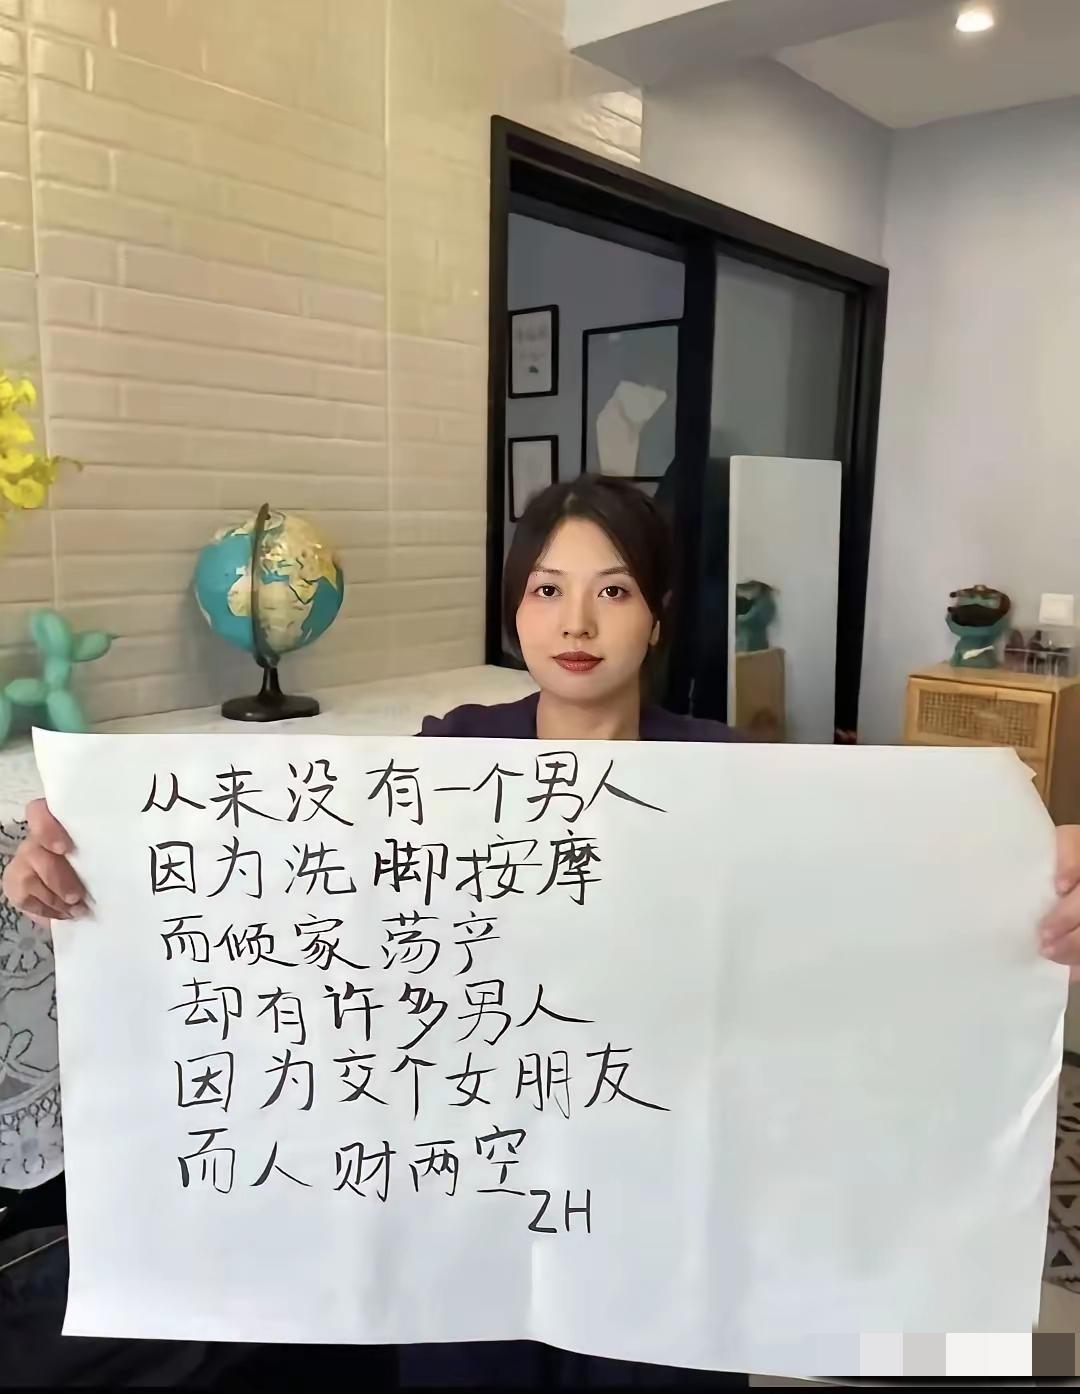 从来没有一个男人
因为洗脚按摩
而倾家荡产
却有许多男人
因为交个女朋友
而人财两空
ZH